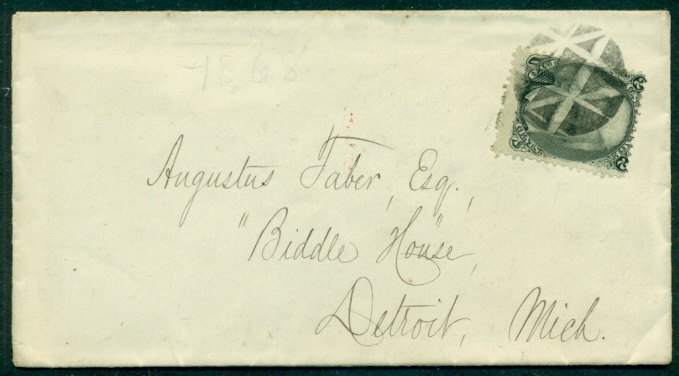 1868
Augustus Taber, Esq.,
"Biddle House",
Detroit, Mich.